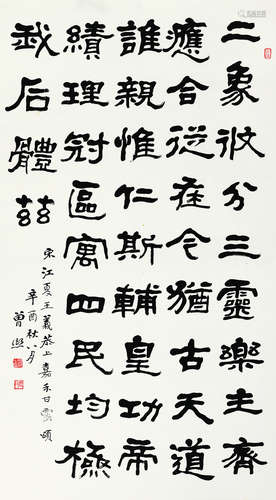 二象攸分三靈樂主齊
應合從在今猶古天道
誰親惟仁斯輔皇功帝
績理冠區寓四民均極
我后體茲
宋江夏王義恭上嘉禾甘露頌
辛酉秋八月
曾熙